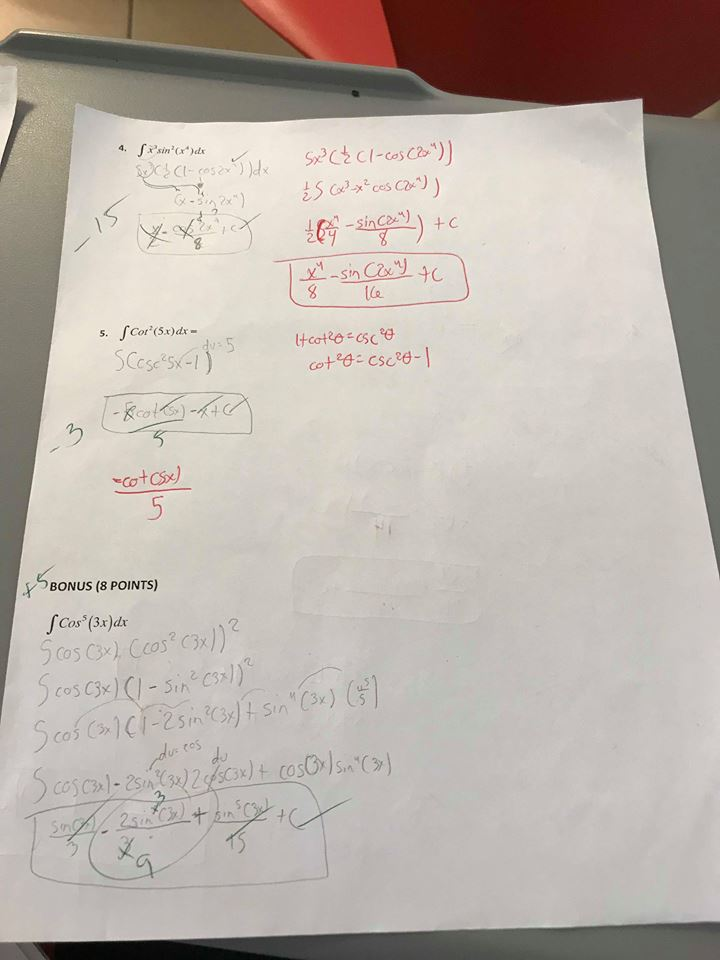 4. ∫x³sin²(x⁴)dx
Sx³(½(1-cos2x⁴))dx
(x-sin2x⁴)
8 +C
-15
Sx³(½(1-cos(2x⁴))
½S(x³-x²cos(2x⁴))
½(x⁴/4 - sin(2x⁴)/8) +C
x⁴/8 - sin(2x⁴)/16 +C
5. ∫Cot²(5x)dx =
du=5
S(csc²5x-1)
-cot(5x) -x+C
5
-3
-cot(5x)
5
1+cot²θ=csc²θ
cot²θ=csc²θ-1
+5
BONUS (8 POINTS)
∫Cos⁵(3x)dx
Scos(3x).(cos²(3x))²
Scos(3x)(1-sin²(3x))²
Scos(3x)(1-2sin²(3x)+sin⁴(3x) (u⁵/5)
du=cos du
Scos(3x)-2sin²(3x)2cos(3x)+cos(3x)sin⁴(3x)
sin(3x)/3 - 2sin³(3x)/9 + sin⁵(3x)/15 +C